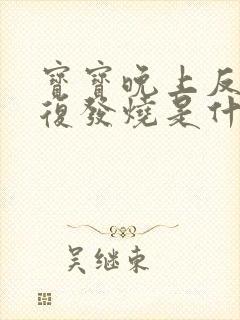 寶寶晚上反
復發燒是什
吴继东